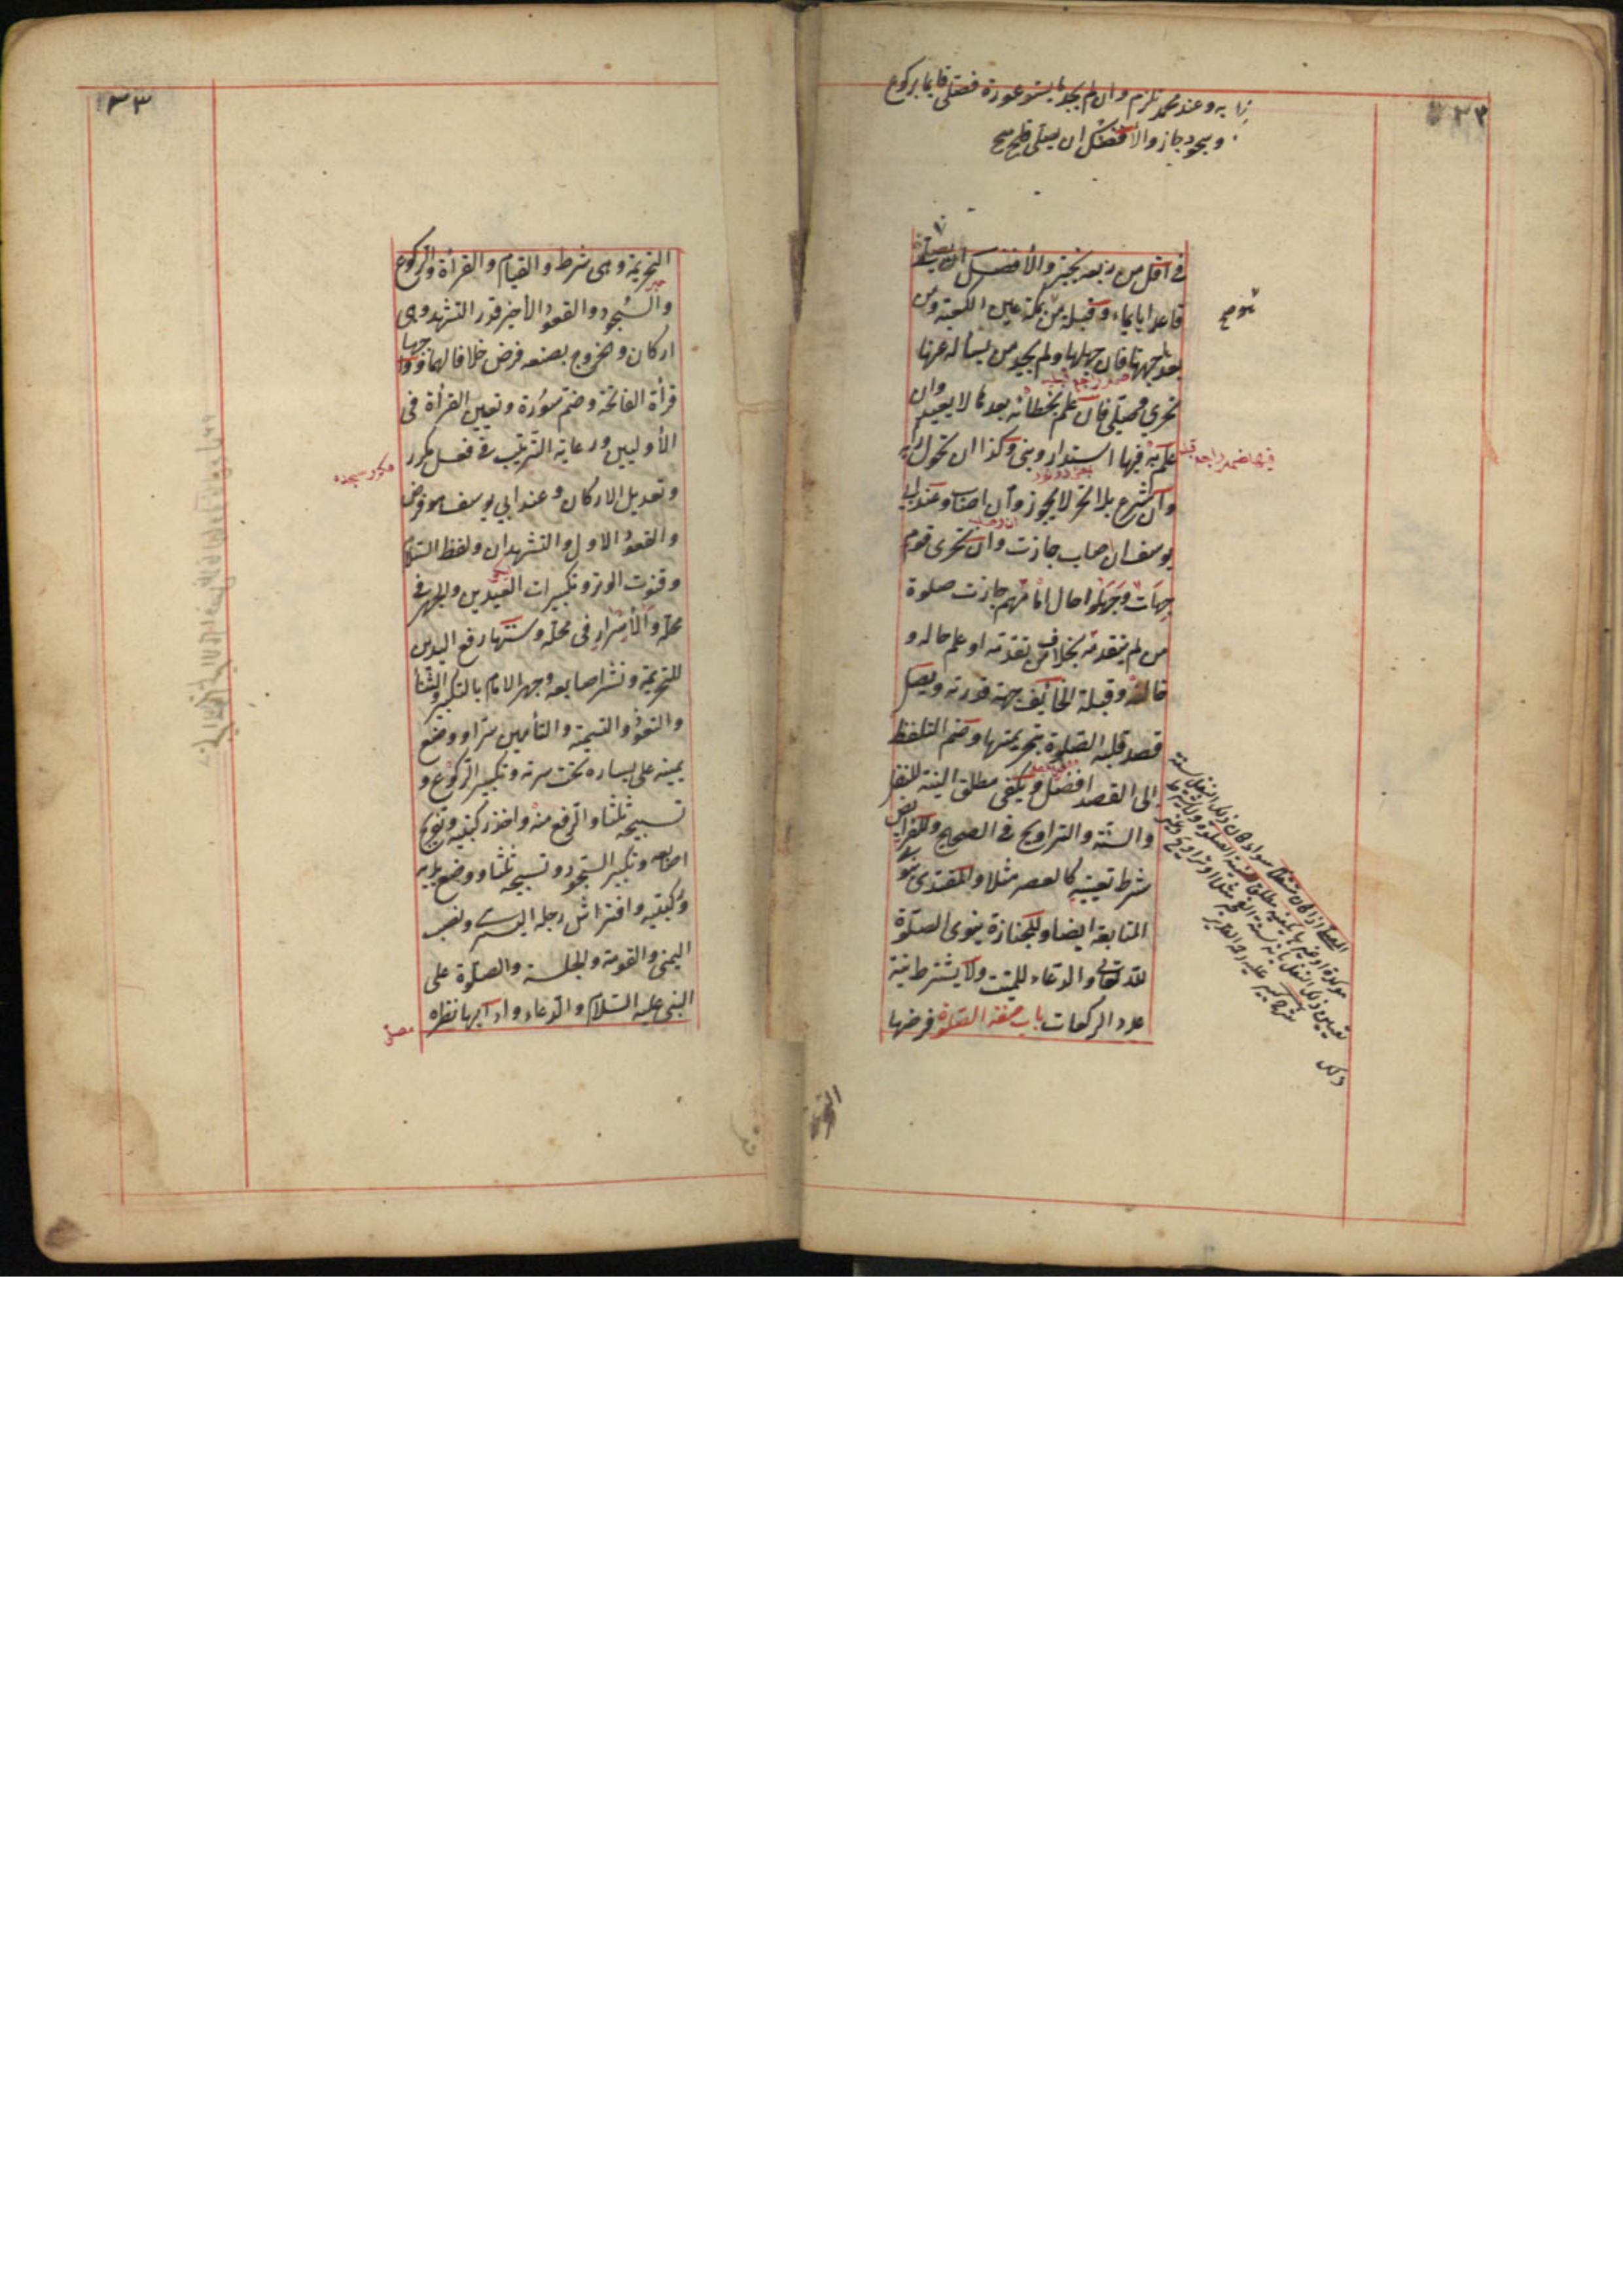 ٣٣
به وعند محمد تلزم وان لم يجد ما يستر عورة فصلى قايما بركوع
وسجود جاز والافضل ان يصلى
في اقل من ربعه يخير والأفضل ان يصلي
قاعدا بايماء وقبلة من بمكة عين الكعبة ومن
بعد جهتها فان جهلها ولم يجد من يسأله عنها
تحري وصلى فان علم بخطائه بعدها لا يعيد وان
علم به فيها استدار وبنى وكذا ان تحول رايه
وان شرع بلا تحر لا يجوز وان اصاب وعند ابي
يوسف ان اصاب جازت وان تحرى قوم
جهات وجهلوا حال امامهم جازت صلوة
من لم يتقدمه بخلاف من تقدمه او علم حاله و
خالفه وقبلة الخائف جهة قدرته ويصل
قصد قلبه الصلوة بتحريمتها وضم التلفظ
الى القصد افضل ويكفى مطلق النية للنفل
والسنة والتراويح في الصحيح وللفرايض
شرط تعيينه كالعصر مثلا والمقتدى ينوي
المتابعة ايضا وللجنازة ينوى الصلوة
لله تعالى والدعاء للميت ولا يشترط نية
عدد الركعات باب صفة الصلوة فرضها
ذلك
٣٣
التحريمة وهى شرط والقيام والقرأة والركوع
والسجود والقعود الأخير قدر التشهد وهى
اركان وخروج بصنعه فرض خلافا لهما وواجبها
قرأة الفاتحة وضم سورة وتعيين القرأة فى
الأوليين ورعاية الترتيب في فعل مكرر
مكرر سجده
وتعديل الاركان وعند ابي يوسف هو فرض
والقعود الاول والتشهدان ولفظ السلام
وقنوت الوتر وتكبيرات العيدين والجهر في
محله والأسرار في محله وسننها رفع اليدين
للتحريمة ونشر اصابعه وجهر الامام بالتكبير والثنأ
والتعوذ والتسمية والتأمين سرا ووضع
يمينه على يساره تحت سرته وتكبير الركوع و
تسبيحه ثلثا والرفع منه واخذ ركبتيه وتفريج
اصابعه وتكبير السجود وتسبيحه ثلثا ووضع يديه
وركبتيه وافتراش رجله اليسرى ونصب
اليمنى والقومة والجلسة والصلوة على
النبى عليه السلام والدعاء وادابها نظره
مصلى